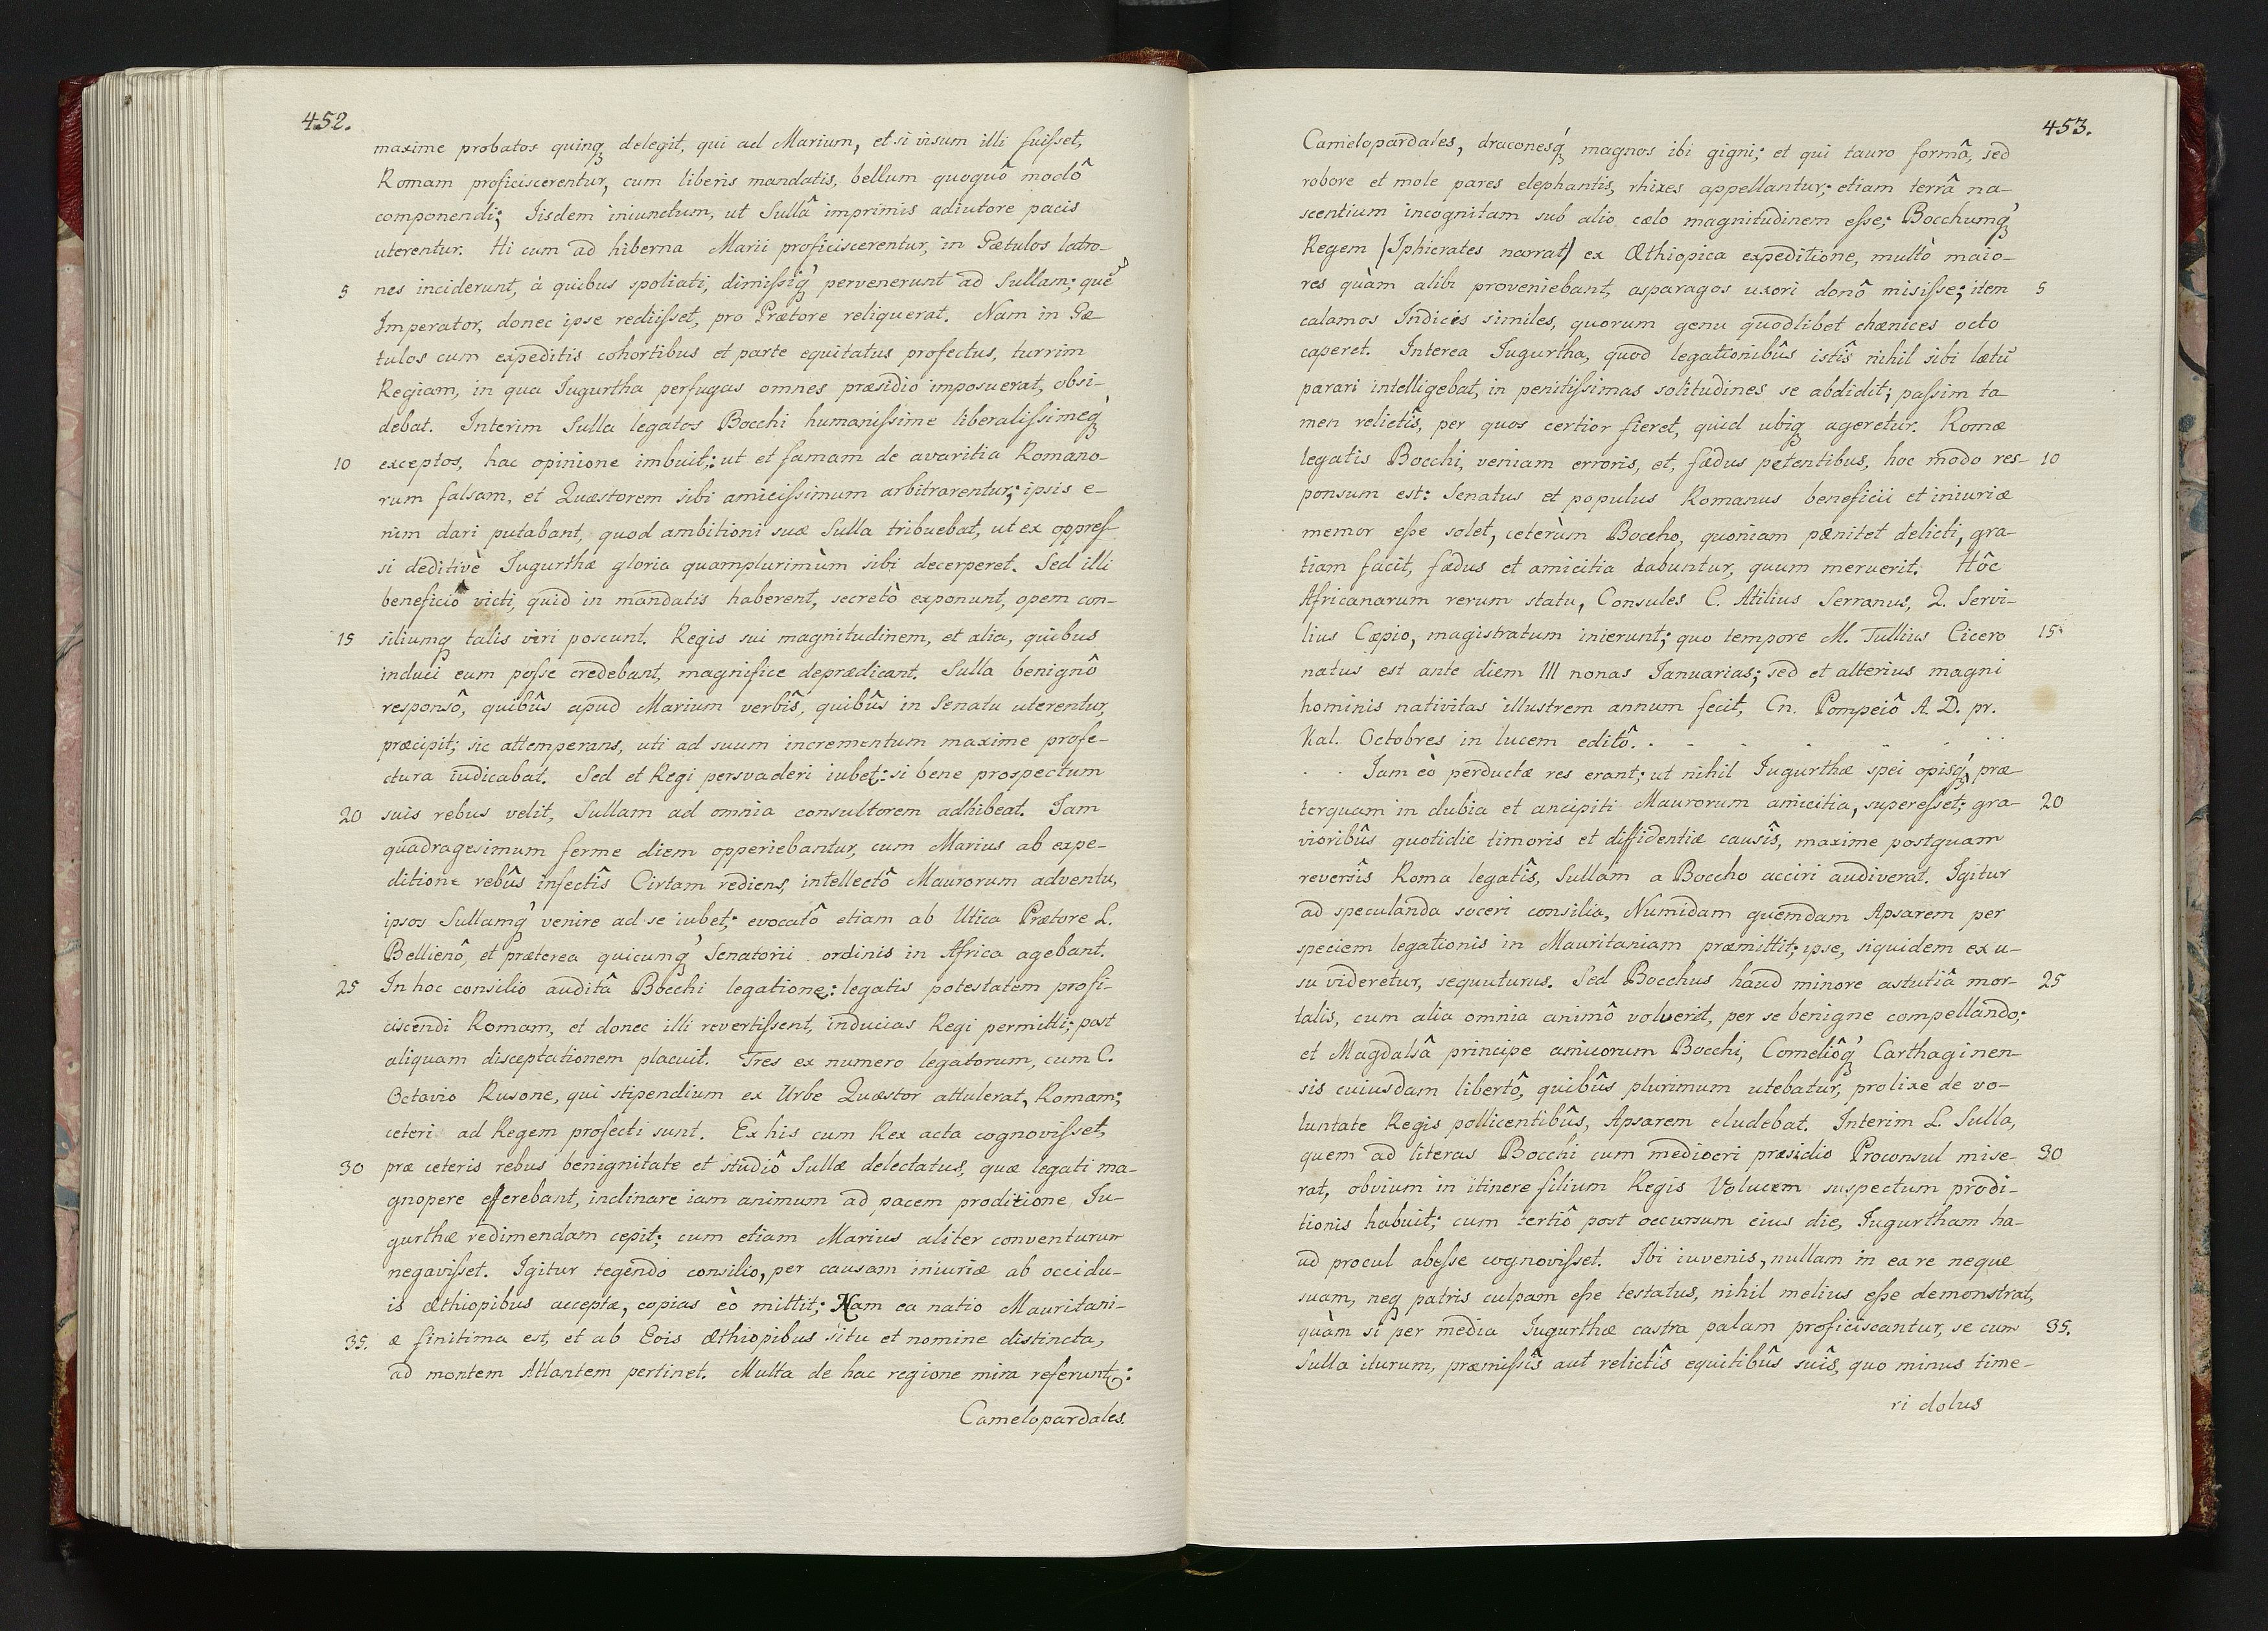 452.
maxime probatos quinq́ delegit, qui ad Marium, et si visum illi fuisset,
Romam proficiscerentur, cum liberis mandatis, bellum quoquô modô
componendi; Iisdem iniunctum, ut Sullâ imprimis adiutore pacis
uterentur. Hi cum ad hiberna Marii proficiscerentur, in Gætulos latro-
5 nes inciderunt, à quibus spoliati, dimissiq́ pervenerunt ad Sullam; quē
Imperator, donec ipse rediisset, pro Prætore reliquerat. Nam in Gæ-
tulos cum expeditis cohortibus et parte equitatus profectus, turrim
Regiam, in qua Iugurtha perfugas omnes præsidio imposuerat, obsi-
debat. Interim Sulla legatos Bocchi humanissime liberalissimeq́
10 exceptos, hac opinione imbuit; ut et famam de avaritia Romano-
rum falsam, et Quæstorem sibi amicissimum arbitrarentur; ipsis e-
nim dari putabant, quod ambitioni suæ Sulla tribuebat, ut ex oppres-
si deditivè Iugurthæ gloria quamplurimùm sibi decerperet. Sed illi
beneficiô victi, quid in mandatis haberent, secretò exponunt, opem con-
15 siliumq́ talis viri poscunt. Regis sui magnitudinem, et alia, quibus
induci eum posse credebant, magnifice deprædicant. Sulla benignô
responsô, quibûs apud Marium verbîs, quibûs in Senatu uterentur,
præcipit; sic attemperans, uti ad suum incrementum maxime profe-
ctura iudicabat. Sed et Regi persvaderi iubet: si bene prospectum
20 suis rebus velit, Sullam ad omnia consultorem adhibeat. Iam
quadragesimum ferme diem opperiebantur, cum Marius ab expe-
ditione rebûs infectîs Cirtam rediens, intellectô Maurorum adventu,
ipsos Sullamq́ venire ad se iubet; evocatô etiam ab Utica Prætore L.
Bellienô, et præterea quicunq́ Senatorii ordinis in Africa agebant.
25 In hoc consilio auditâ Bocchi legatione: legatis potestatem profi-
ciscendi Romam, et donec illi revertissent, inducias Regi permitti; post
aliquam disceptationem placuit. Tres ex numero legatorum, cum C.
Octavio Rusone, qui stipendium ex Urbe Quæstor attulerat, Romam;
ceteri ad Regem profecti sunt. Ex his cum Rex acta cognovisset,
30 præ ceteris rebus benignitate et studiô Sullæ delectatus, quæ legati ma-
gnopere efferebant, inclinare iam animum ad pacem proditione Iu-
gurthæ redimendam cepit; cum etiam Marius aliter conventurum
negavisset. Igitur tegendo consilio, per causam iniuriæ ab occidu-
is Æthiopibus acceptæ, copias eò mittit; Nam ea natio Mauritani-
35. æ finitima est, et ab Eois Æthiopibus situ et nomine distincta,
ad montem Atlantem pertinet. Multa de hac regione mira referunt:
Camelopardales.
453.
Camelopardales, draconesq́ magnos ibi gigni; et qui tauro formâ, sed
robore et mole pares elephantis, rhizes appellantur; etiam terrâ na-
scentium incognitam sub alio cælo magnitudinem esse; Bocchumq́
Regem (Iphicrates narrat) ex Æthiopica expeditione, multò maio-
res quàm alibi proveniebant, asparagos uxori donô misisse; item 5
calamos Indicis similes, quorum genu quodlibet chænices octo
caperet. Interea Iugurtha, quod legationibûs istîs nihil sibi lætū
parari intelligebat, in penitissimas solitudines se abdidit; passim ta-
men relictîs, per quos certior fieret, quid ubiq́ ageretur. Romæ
legatis Bocchi, veniam erroris, et, fædus petentibus, hoc modo res- 10
ponsum est: Senatus et populus Romanus beneficii et iniuriæ
memor esse solet, ceterùm Boccho, quoniam pænitet delicti, gra-
tiam facit, fædus et amicitia dabuntur, quum meruerit. Hôc
Africanarum rerum statu, Consules C. Atilius Serranus, Q. Servi-
lius Cæpio, magistratum inierunt; quo tempore M. Tullius Cicero 15
natus est ante diem III nonas Ianuarias; sed et alterius magni
hominis nativitas illustrem annum fecit, Cn. Pompeiô A. D. pr.
Kal. Octobres in lucem editô.
Iam eò perductæ res erant; ut nihil Iugurthæ spei opisq́ præ
terquam in dubia et ancipiti Maurorum amicitia, superesset; gra- 20
vioribûs quotidie timoris et diffidentiæ causîs, maxime postquam
reversîs Roma legatîs, Sullam a Boccho acciri audiverat. Igitur
ad speculanda soceri consilia, Numidam quemdam Apsarem per
speciem legationis in Mauritaniam præmittit; ipse, siquidem ex u-
su videretur, sequuturus. Sed Bocchus haud minore astutiâ mor- 25
talis, cum alia omnia animô volverit, per se benigne compellando;
et Magdalsâ principe amicorum Bocchi, Corneliôq́ Carthaginen
sis cuiusdam libertô, quibûs plurimum utebatur, prolixe de vo-
luntate Regis pollicentibûs, Apsarem eludebat. Interim L. Sulla,
quem ad literas Bocchi cum mediocri præsidio Proconsul mise- 30
rat, obvium in itinere filium Regis Volucem suspectum prodi-
tionis habuit; cum tertiô post occursum eius die, Iugurtham ha-
ud procul abesse cognovisset. Ibi iuvenis, nullam in ea re neque
suam, neq́ patris culpam esse testatus, nihil melius esse demonstrat,
quàm si per media Iugurthæ castra palam proficiscantur, se cum 35.
Sulla iturum, præmissîs aut relictîs equitibûs suîs, quo minus time-
ri dolus